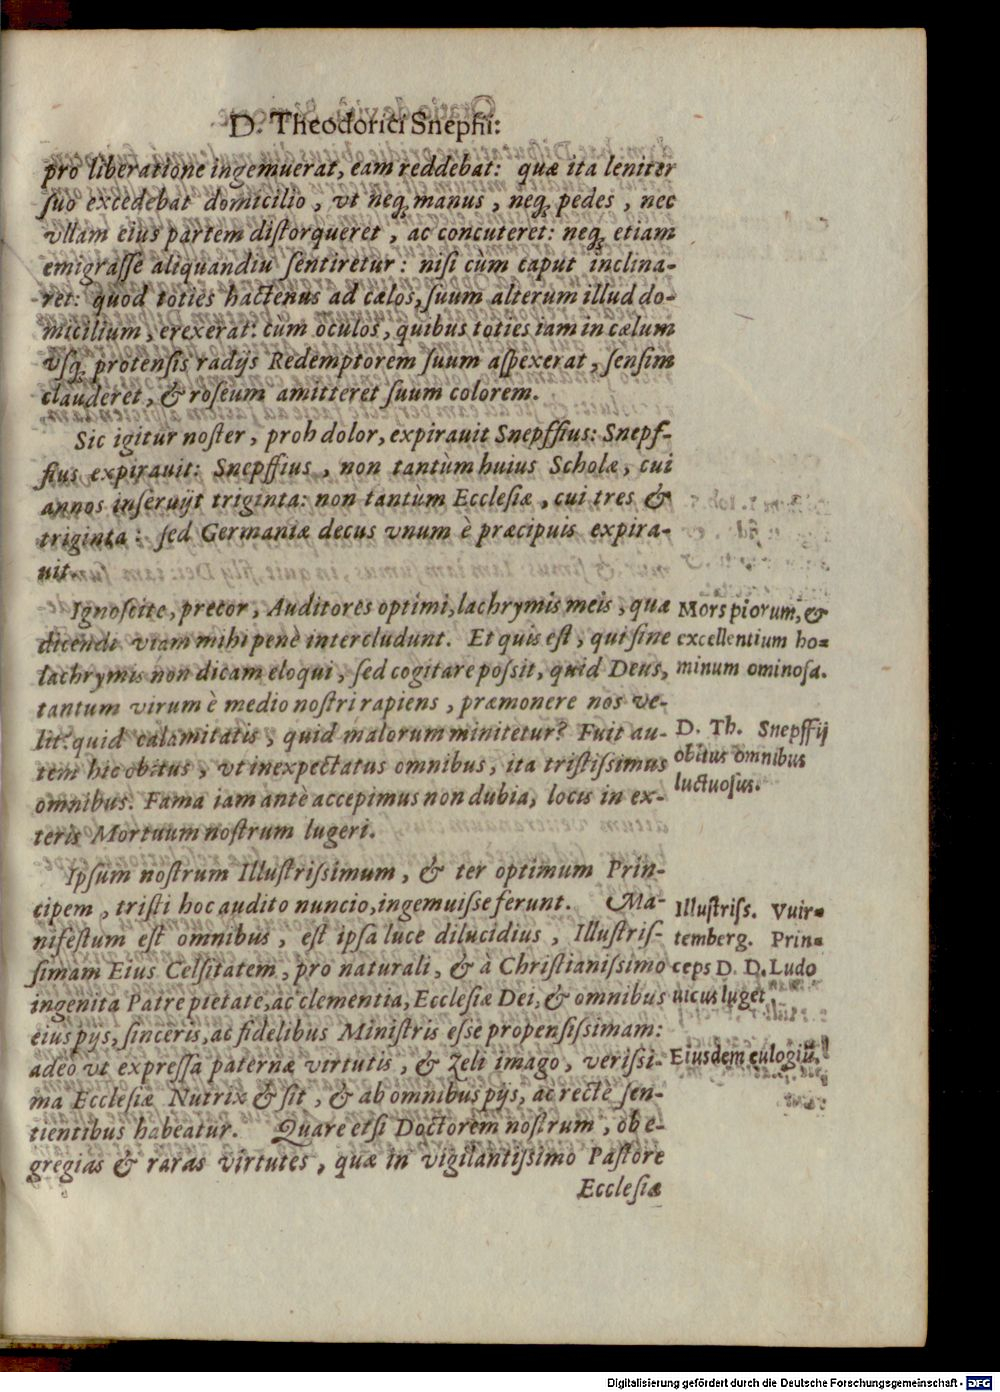 D. Theodorici Snepfii:
pro liberatione ingemuerat, eam reddebat: quæ ita leniter
ſuo excedebat domicilio, vt neq; manus, neq; pedes, nec
vllam eius partem diſtorqueret, ac concuteret: neq; etiam
emigraſſe aliquandiu ſentiretur: niſi cùm caput inclina-
ret: quod toties hactenus ad cælos, ſuum alterum illud do-
micilium, erexerat: cum oculos, quibus toties iam in cælum
vſq; protenſis radijs Redemptorem ſuum aſpexerat, ſenſim
clauderet, & roſeum amitteret ſuum colorem.
Sic igitur noſter, proh dolor, expirauit Snepffius: Snepf-
fius expirauit: Snepffius, non tantùm huius Scholæ, cui
annos inſeruijt triginta: non tantùm Eccleſiæ, cui tres &
triginta: ſed Germaniæ decus vnum è præcipuis expira-
uit.
Ignoſcite, precor, Auditores optimi, lachrymis meis, quæ
dicendi viam mihi penè intercludunt. Et quis eſt, qui ſine
lachrymis non dicam eloqui, ſed cogitare poſsit, quid Deus,
tantum virum è medio noſtri rapiens, præmonere nos ve-
lit: quid calamitatis, quid malorum minitetur? Fuit au-
tem hic obitus, vt inexpectatus omnibus, ita triſtiſsimus
omnibus. Fama iam antè accepimus non dubia, locis in ex-
teris Mortuum noſtrum lugeri.
Mors piorum, &
excellentium ho=
minum ominoſa.
D. Th. Snepffij
obitus omnibus
luctuoſus.
Ipſum noſtrum Illuſtriſsimum, & ter optimum Prin-
cipem, triſti hoc audito nuncio, ingemuiſſe ferunt. Ma-
nifeſtum eſt omnibus, eſt ipſa luce dilucidius, Illuſtriſ-
ſimam Eius Celſitatem, pro naturali, & à Chriſtianiſsimo
ingenita Patre pietate, ac clementia, Eccleſiæ Dei, & omnibus
eius pijs, ſinceris, ac fidelibus Miniſtris eſſe propenſiſsimam:
adeo vt expreſſa paternæ virtutis, & Zeli imago, veriſsi-
ma Eccleſiæ Nutrix & ſit, & ab omnibus pijs, ac rectè ſen-
tientibus habeatur. Quare etſi Doctorem noſtrum, ob e-
gregias & raras virtutes, quæ in vigilantiſsimo Paſtore
Eccleſiæ
Illuſtriſs. Vuir=
temberg. Prin=
ceps D. D. Ludo
uicus luget.
Eiusdem eulogiū.
Digitalisierung gefördert durch die Deutsche Forschungsgemeinschaft - DFG